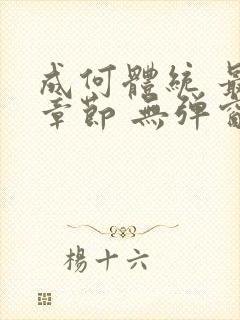 成何體統 最
章節 無弹窗
楊十六